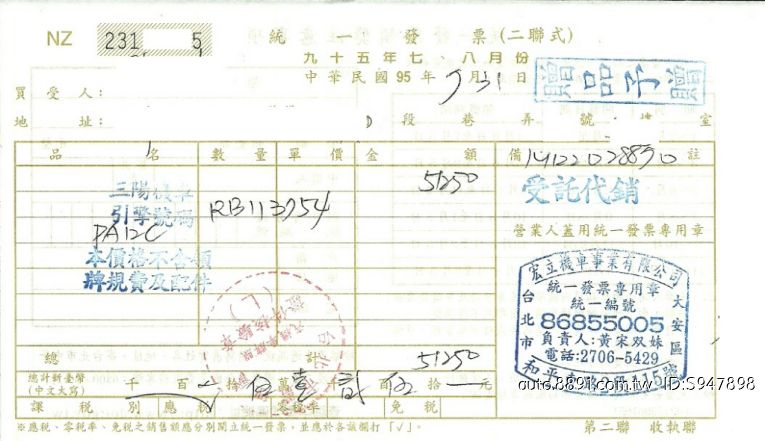 NZ 231 5
統一發票(二聯式)
九十五年七、八月份
中華民國95年7月31日
贈品予贈
買受人:
地址: 段 巷 弄 號 樓 室
品名 數量 單價 金額 備註
14122028890
51250
三陽機車
引擎號碼
RB113754
PA12C
本價格不含領
牌規費及配件
受託代銷
營業人蓋用統一發票專用章
宏立機車事業有限公司
統一發票專用章
統一編號
86855005
負責人:黃宋双妹
電話:2706-5429
台北市 大安區
總計 51250
總計新臺幣 千 百 拾 伍萬 壹千 貳百 伍拾 元
(中文大寫)
auto.8891.com.tw ID:S947898
課稅別 應稅 零稅率 免稅
※應稅、零稅率、免稅之銷售額應分別開立統一發票,並應於各該欄打「√」。
第二聯 收執聯